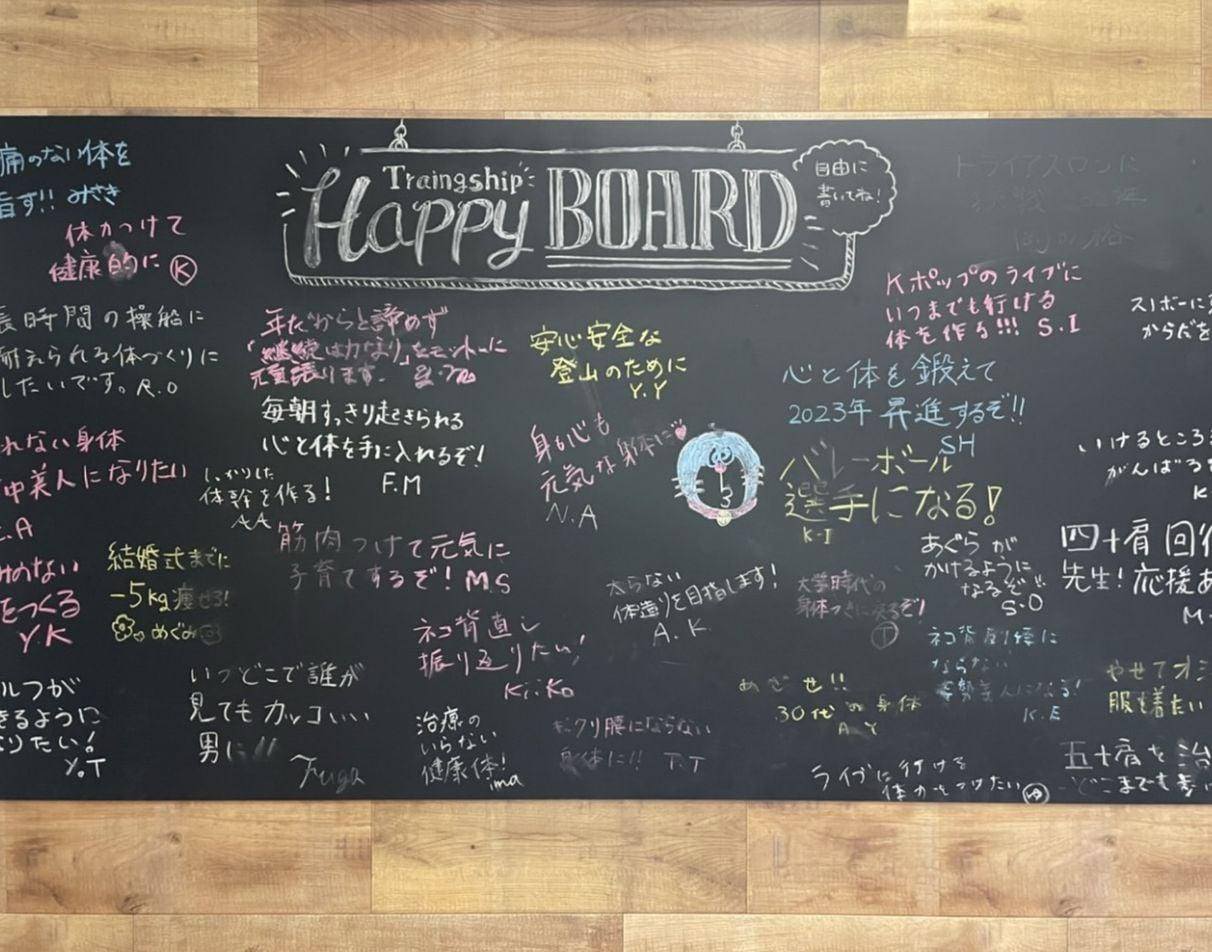 Traingship
Happy BOARD
自由に
書いてね!
痛のない体を
指す!! みさき
体力つけて
健康的に K
長時間の操船に
耐えられる体づくりに
したいです。R.O
れない身体
中美人になりたい
.A
みのない
をつくる
Y.K
結婚式までに
-5kg痩せる!
めぐみ
ルフが
きるように
なりたい!
Y.T
年だからと諦めず
「継続は力なり」をモットーに
頑張ります。
毎朝すっきり起きられる
心と体を手に入れるぞ!
F.M
しっかりした
体幹を作る!
A.A
筋肉つけて元気に
子育てするぞ! M.S
いつどこで誰が
見てもカッコいい
男に!!
Fuga
安心安全な
登山のために
Y.Y
身も心も
元気な身体に
N.A
ネコ背直し
振り返りたい!
Kiiko
治療の
いらない
健康体!
ima
太らない
体造りを目指します!
A.K
ギックリ腰にならない
身体に!! T.T
トライアスロンに
Kポップのライブに
いつまでも行ける
体を作る!!! S.I
心と体を鍛えて
2023年昇進するぞ!!
SH
バレーボール
選手になる!
K-I
あぐらが
かけるように
なるぞ!!
S.O
大学時代の
身体つきに戻るぞ!
T
ネコ背
ならない
になる!
K.E
めざせ!!
30代の身体
A.Y
ライブに行ける
体力をつけたい
ストボーに
からだを
いけるところ
がんばる
K
四十肩回復
先生!応援あ
M
やせてオシ
服を着たい
五十肩を治
どこまでも